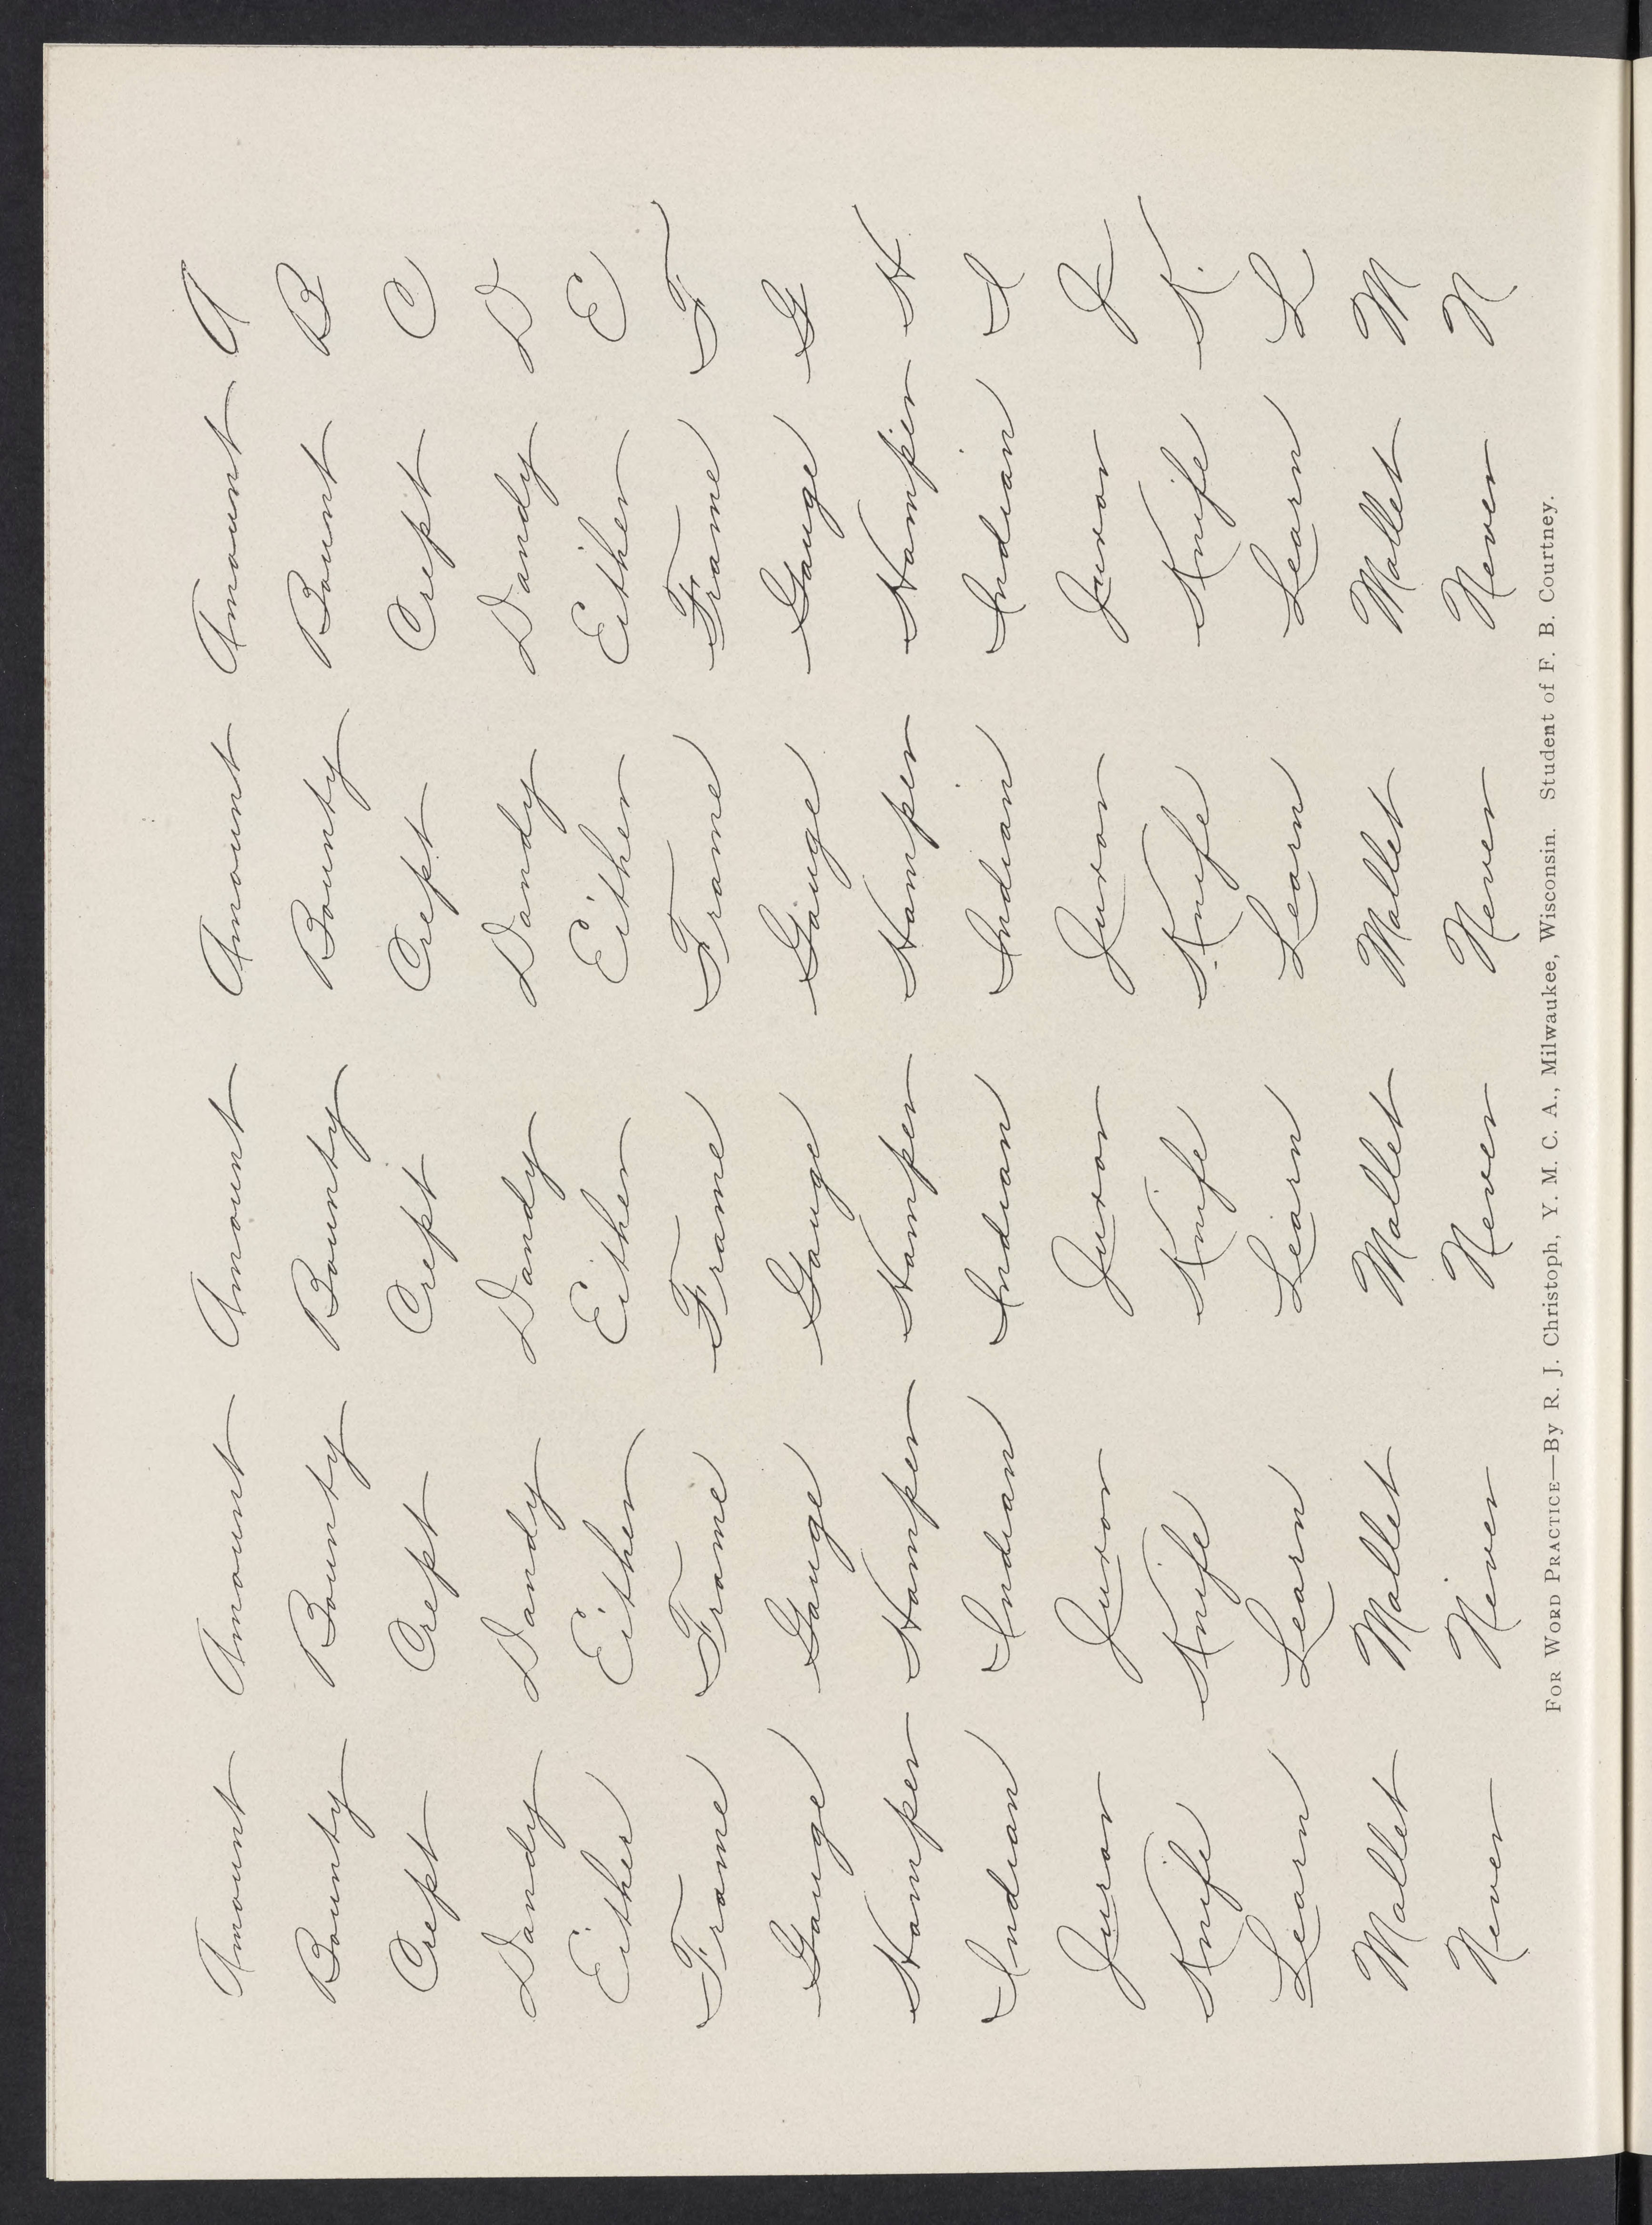 Amount Amount Amount Amount Amount A
Bounty Bounty Bounty Bounty Bount B
Crept Crept Crept Crept Crept C
Dandy Dandy Dandy Dandy Dandy D
Either Either Either Either Either E
Frame Frame Frame Frame Frame F
Gauge Gauge Gauge Gauge Gauge G
Hamper Hamper Hamper Hamper Hamper H
Indian Indian Indian Indian Indian I
Juror Juror Juror Juror Juror J
Knife Knife Knife Knife Knife K
Learn Learn Learn Learn Learn L
Mallet Mallet Mallet Mallet Mallet M
Never Never Never Never Never N
FOR WORD PRACTICE—By R. J. Christoph, Y. M. C. A., Milwaukee, Wisconsin. Student of F. B. Courtney.